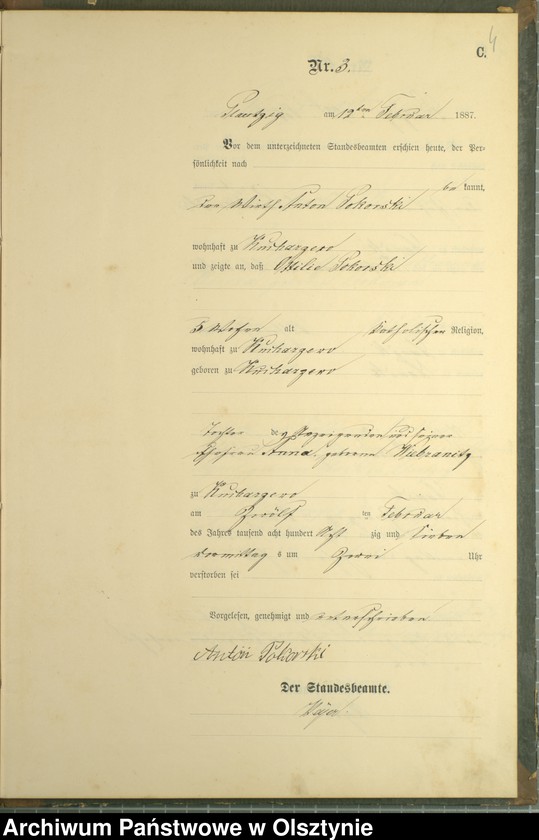 4
C.
Nr. 3.
am 12ten Februar 1887.
Vor dem unterzeichneten Standesbeamten erschien heute, der Per-
sönlichkeit nach
be kannt,
der Wirth Anton Pokorski
wohnhaft zu Kucharzewo
und zeigte an, daß Ottilie Pokorski
5 Wochen alt katholischer Religion,
wohnhaft zu Kucharzewo
geboren zu Kucharzewo
Tochter des Anzeigenden und seiner
Ehefrau Anna geborene
zu Kucharzewo
am Zwölf ten Februar
des Jahres tausend acht hundert Acht zig und Sieben
Vormittag s um Zwei Uhr
verstorben sei
Vorgelesen, genehmigt und unterschrieben
Anton Pokorski
Der Standesbeamte.
Archiwum Państwowe w Olsztynie